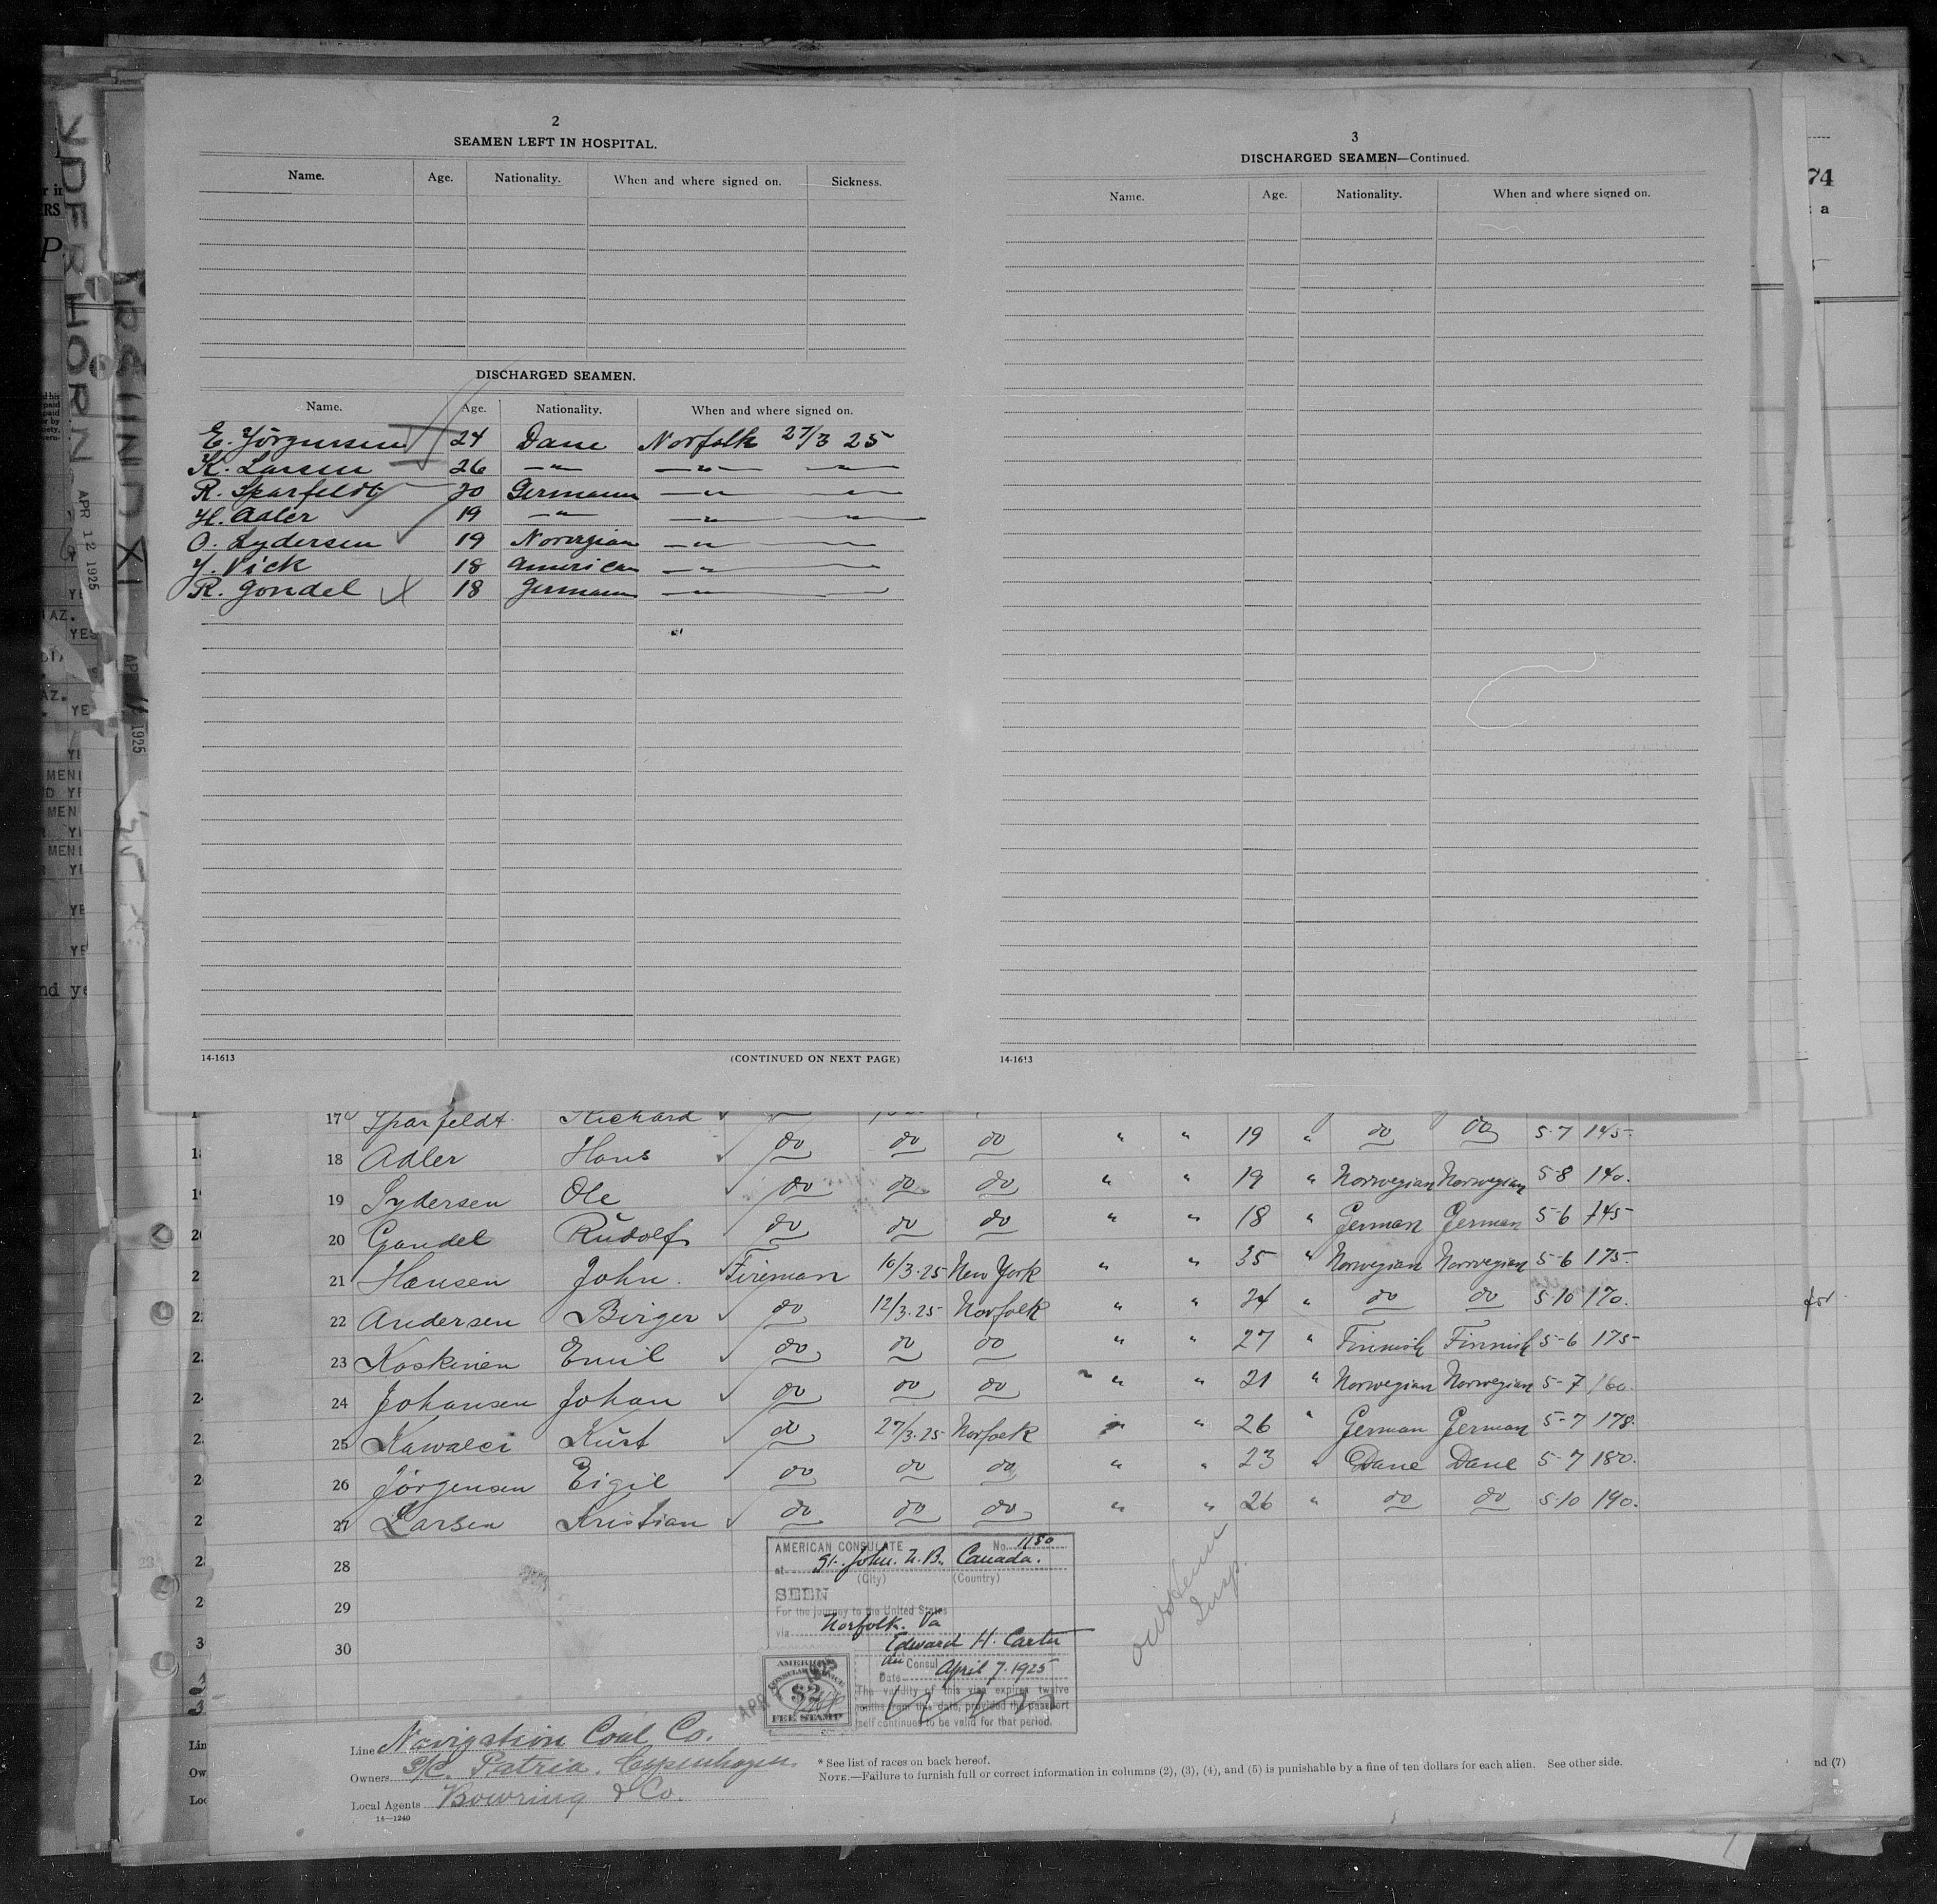 2
SEAMEN LEFT IN HOSPITAL.
Name. Age. Nationality. When and where signed on. Sickness.
DISCHARGED SEAMEN.
Name. Age. Nationality. When and where signed on.
E. Jörgensen 24 Dane Norfolk 27/3 25
K. Larsen 26 —"— —"— —"—
R. Sparfeldt 20 Germann —"— —"—
H. Adler 19 —"— —"— —"—
O. Lydersen 19 Norvegian —"— —"—
J. Vick 18 American —"—
R. Gondel 18 Germann —"—
14-1613 (CONTINUED ON NEXT PAGE)
3
DISCHARGED SEAMEN—Continued.
Name. Age. Nationality. When and where signed on.
14-1613
74
a
VDERHORN
APR 12 1925
1925
17 Sparfeldt Richard
18 Adler Hans do do do " " 19 " do do 5-7 145-
19 Lydersen Ole do do do " " 19 " Norwegian Norwegian 5-8 140.
20 Gandel Rudolf do do do " " 18 " German German 5-6 145
21 Hansen John. Fireman 10/3-25 New York " " 35 " Norwegian Norwegian 5-6 175-
22 Andersen Birger do 12/3-25 Norfolk " " 24 " do do 5-10 170.
23 Koskinen Emil do do do " " 27 " Finnish Finnish 5-6 175-
24 Johansen Johan do do do " " 21 " Norwegian Norwegian 5-7 160.
25 Kawalei Kurt do 27/3-25 Norfolk " " 26 " German German 5-7 178.
26 Jörgensen Eigil do do do " " 23 " Dane Dane 5-7 180.
27 Larsen Kristian do do do " " 26 " do do 5-10 190.
28
29
30
AMERICAN CONSULATE No. 1180
at St. John. N.B. Canada.
(City) (Country)
SEEN
For the journey to the United States
via Norfolk. Va
Edward H. Carter
Consul
Date April 7. 1925
The validity of this visa expires twelve
months from this date, provided the passport
itself continues to be valid for that period.
AMERICAN
CONSULAR SERVICE
$2
FEE STAMP
Line Navigation Coal Co.
Owners S/S. Patria. Copenhagen.
Local Agents Bowring & Co.
14—1240
* See list of races on back hereof.
NOTE.—Failure to furnish full or correct information in columns (2), (3), (4), and (5) is punishable by a fine of ten dollars for each alien. See other side.
nd (7)